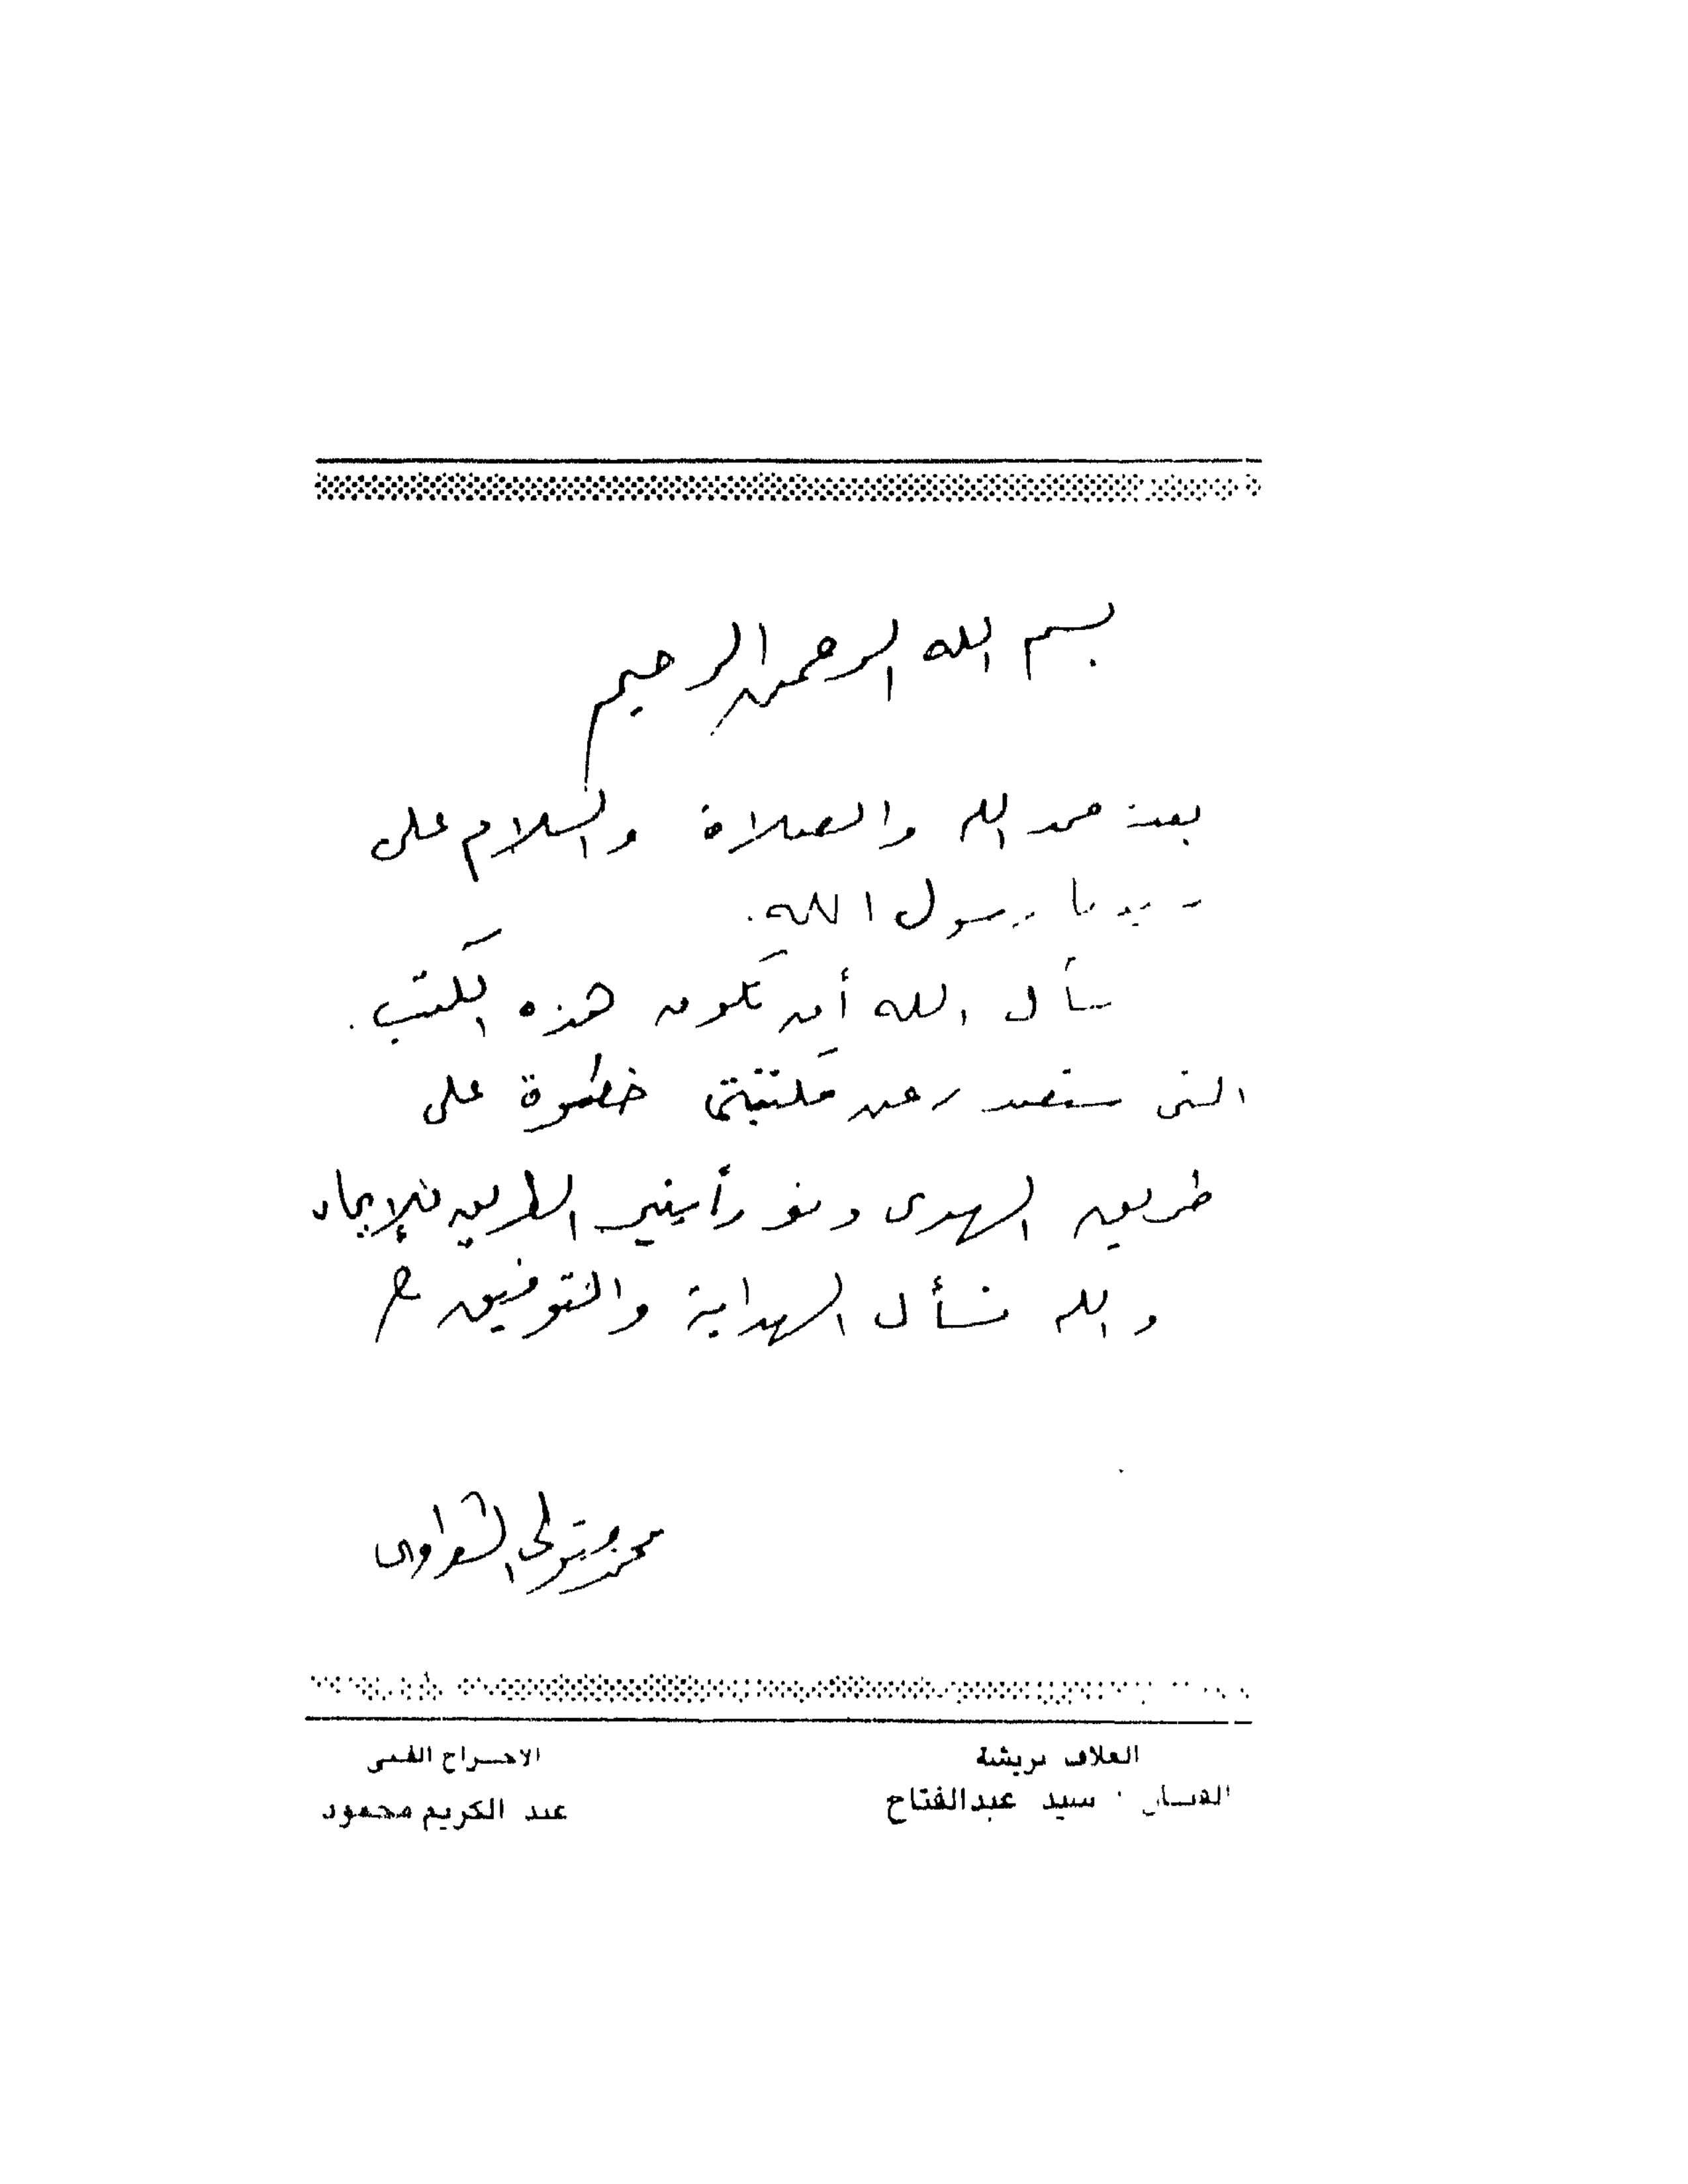 بسم الله الرحمن الرحيم
بعد حمد الله والصلاة والسلام على
سيدنا رسول الله.
نسأل الله أن تكون هذه الكتب.
التى ستصدر عن مكتبتى خطوة على
طريق الهدى ونورا يضىء الطريق للإيمان
والله نسأل الهداية والتوفيق
محمد متولى الشعراوى
الغلاف بريشة
الفنان : سيد عبدالفتاح
الاخراج الفنى
عبد الكريم محمود